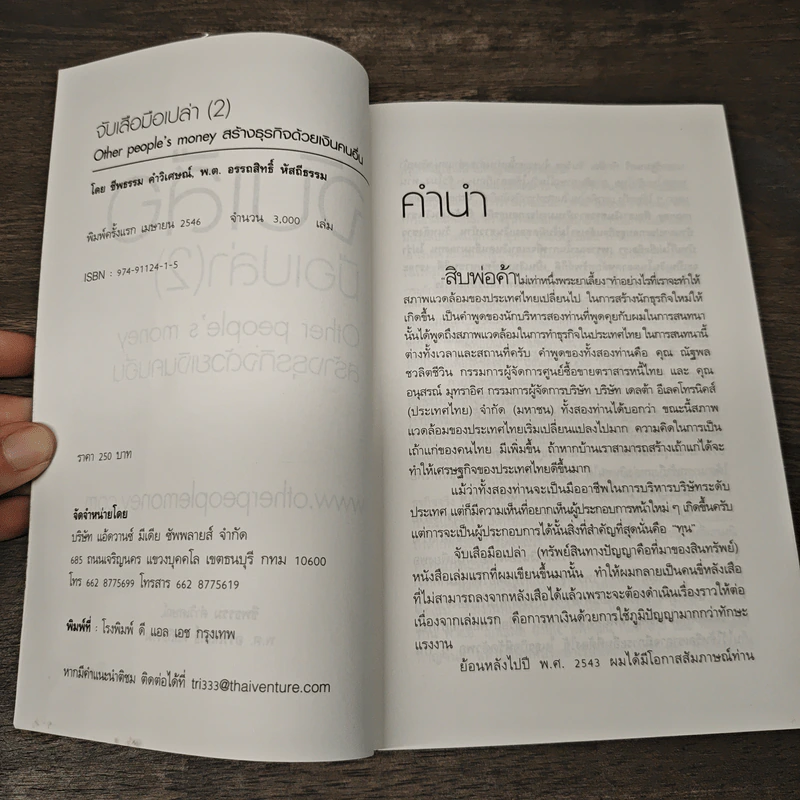 จับเสือมือเปล่า (2)
Other people's money สร้างธุรกิจด้วยเงินคนอื่น
โดย ชีพธรรม คำวิเศษณ์, พ.ต. อรรถสิทธิ์ หัสถีธรรม
พิมพ์ครั้งแรก เมษายน 2546 จำนวน 3,000 เล่ม
ISBN : 974-91124-1-5
ราคา 250 บาท
จัดจำหน่ายโดย
บริษัท แอ้ดวานซ์ มีเดีย ซัพพลายส์ จำกัด
685 ถนนเจริญนคร แขวงบุคคโล เขตธนบุรี กทม 10600
โทร 662 8775699 โทรสาร 662 8775619
พิมพ์ที่ : โรงพิมพ์ ดี แอล เอช กรุงเทพ
หากมีคำแนะนำติชม ติดต่อได้ที่ tri333@thaiventure.com
คำนำ
"สิบพ่อค้าไม่เท่าหนึ่งพระยาเลี้ยง "ทำอย่างไรที่เราจะทำให้
สภาพแวดล้อมของประเทศไทยเปลี่ยนไป ในการสร้างนักธุรกิจใหม่ให้
เกิดขึ้น เป็นคำพูดของนักบริหารสองท่านที่พูดคุยกับผมในการสนทนา
นั้นได้พูดถึงสภาพแวดล้อมในการทำธุรกิจในประเทศไทย ในการสนทนานี้
ต่างทั้งเวลาและสถานที่ครับ คำพูดของทั้งสองท่านคือ คุณ ณัฐพล
ชวลิตชีวิน กรรมการผู้จัดการศูนย์ซื้อขายตราสารหนี้ไทย และ คุณ
อนุสรณ์ มุทราอิศ กรรมการผู้จัดการบริษัท บริษัท เดลต้า อีเลคโทรนิคส์
(ประเทศไทย) จำกัด (มหาชน) ทั้งสองท่านได้บอกว่า ขณะนี้สภาพ
แวดล้อมของประเทศไทยเริ่มเปลี่ยนแปลงไปมาก ความคิดในการเป็น
เถ้าแก่ของคนไทย มีเพิ่มขึ้น ถ้าหากบ้านเราสามารถสร้างเถ้าแก่ได้จะ
ทำให้เศรษฐกิจของประเทศไทยดีขึ้นมาก
แม้ว่าทั้งสองท่านจะเป็นมืออาชีพในการบริหารบริษัทระดับ
ประเทศ แต่ก็มีความเห็นที่อยากเห็นผู้ประกอบการหน้าใหม่ ๆ เกิดขึ้นครับ
แต่การจะเป็นผู้ประกอบการได้นั้นสิ่งที่สำคัญที่สุดนั่นคือ "ทุน"
จับเสือมือเปล่า (ทรัพย์สินทางปัญญาคือที่มาของสินทรัพย์)
หนังสือเล่มแรกที่ผมเขียนขึ้นมานั้น ทำให้ผมกลายเป็นคนขี่หลังเสือ
ที่ไม่สามารถลงจากหลังเสือได้แล้วเพราะจะต้องดำเนินเรื่องราวให้ต่อ
เนื่องจากเล่มแรก คือการหาเงินด้วยการใช้ภูมิปัญญามากกว่าทักษะ
แรงงาน
ย้อนหลังไปปี พ.ศ. 2543 ผมได้มีโอกาสสัมภาษณ์ท่าน